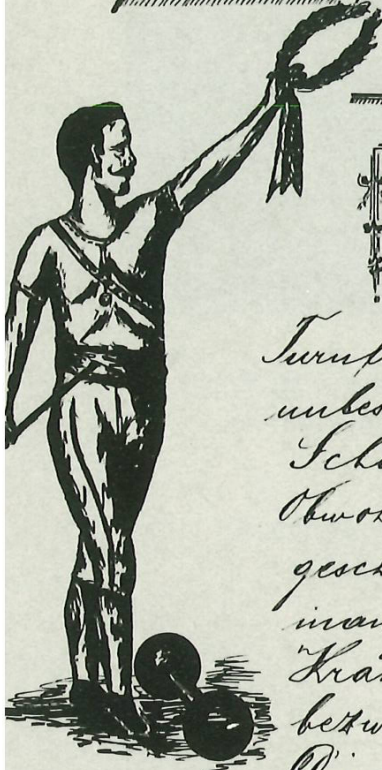 Turnf
unbes
Scha
Obwoh
gesch
inan
Kra
bezw